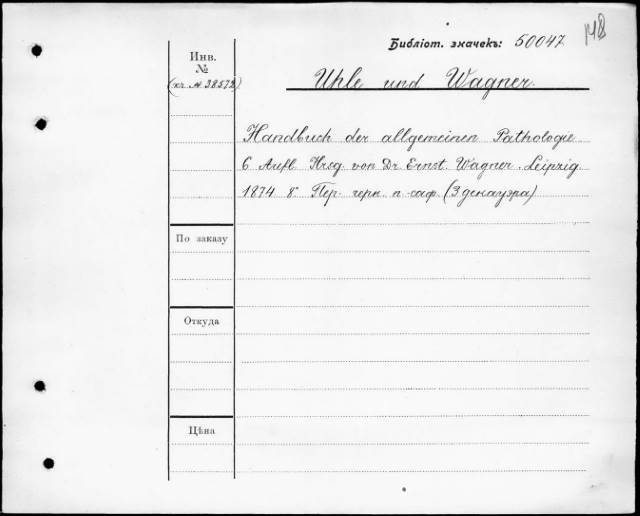 148
Библіот. значекъ: 50047
Инв.
№
(хг. № 38572)
Uhle und Wagner.
Handbuch der allgemeinen Pathologie.
6 Aufl. Hrsg. von Dr. Ernst. Wagner. Leipzig.
1874 8° Пер. черн. п.-саф. (3 декауэра)
По заказу
Откуда
Цѣна